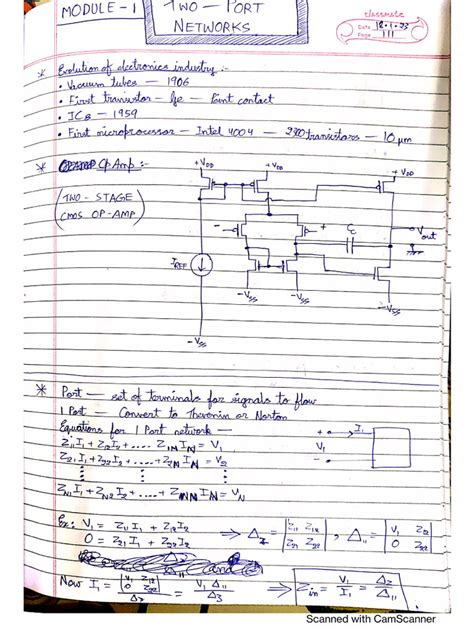 MODULE - 1
TWO - PORT
NETWORKS
classmate
Date 18.1.23
Page 111
* Evolution of electronics industry :-
• Vacuum tubes — 1906
• First transistor — Ge — Point contact
• ICs — 1959
• First microprocessor — Intel 4004 — 2300 transistors — 10 μm
* Op Amp :-
(TWO - STAGE
CMOS OP-AMP)
+VDD +VDD +VDD
- + Cc Vout
IREF
-VSS -VSS -VSS
-VSS
* Port — set of terminals for signals to flow
1 Port — Convert to Thevenin or Norton
Equations for 1 Port network —
Z11 I1 + Z12 I2 + .... Z1N IN = V1
Z21 I1 + Z22 I2 + .... Z2N IN = V2
⋮ ⋮ ⋮
ZN1 I1 + ZN2 I2 + .... ZNN IN = VN
+ I1
V1
-
Ex: V1 = Z11 I1 + Z12 I2
0 = Z21 I1 + Z22 I2
⇒ Δz = |Z11 Z12; Z21 Z22|, Δ11 = |V1 Z12; 0 Z22|
Now I1 = |V1 Z12; 0 Z22| / Δz = V1 Δ11 / Δz ⇒ Zin = V1 / I1 = Δz / Δ11
Scanned with CamScanner